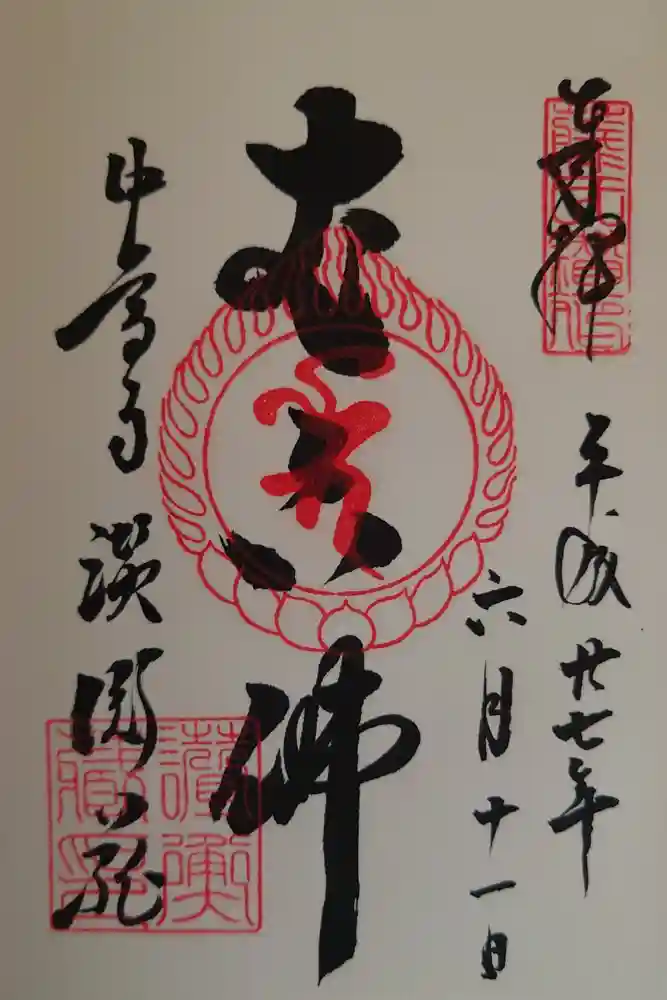 奉拝
平成廿七年
六月十一日
丈六佛
中尊寺 讃衡蔵
讃衡蔵印